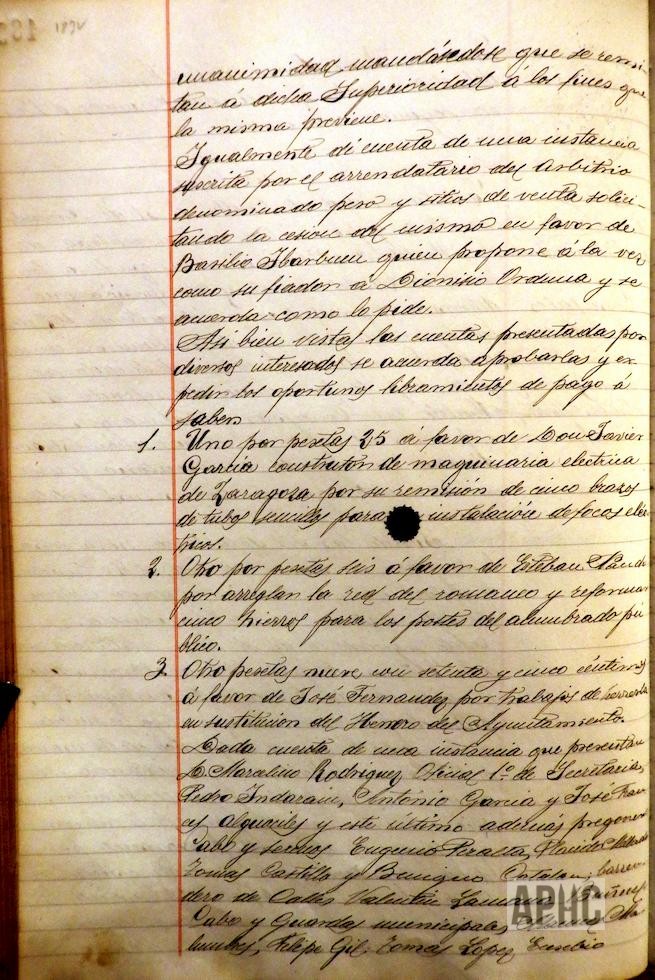 1892
unanimidad mandándose que se remi-
tan á dicha Superioridad á los fines que
la misma previene.
Igualmente di cuenta de una instancia
suscrita por el arrendatario del arbitrio
denominado peso y sitios de venta solici-
tando la cesión del mismo en favor de
Basilio Ibarbuen quien propone á la vez
como su fiador á Dionisio Orduna y se
acuerda como lo pide.
Asi bien vistas las cuentas presentadas por
diversos interesados se acuerda aprobarlas y ex-
pedir los oportunos libramientos de pago á
saber
1. Uno por pesetas 25 á favor de Don Javier
Garcia constructor de maquinaria electrica
de Zaragoza por su remisión de cinco brazos
de tubos sencillos para instalación de focos eléc-
tricos.
2. Otro por pesetas seis á favor de Esteban
por arreglar la red del romaneo y reformar
cinco hierros para los postes del alumbrado pú-
blico.
3. Otro pesetas nueve con setenta y cinco céntimos
á favor de José Fernandez por trabajos de herrería
en sustitucion del Herrero del Ayuntamiento.
Dada cuenta de una instancia que presentan
D. Marcelino Rodriguez Oficial 1º de Secretaria,
Pedro Indarain, Antonio Garcia y José
alguaciles y este último además pregonero
Cabo y serenos Eugenio Peralta, Placido
Tomas Castillo y Benigno Catalan, barren-
dero de Calles Valentin
Cabo y Guardas municipales
Felipe Gil, Tomas Lopez, Eusebio
APHC